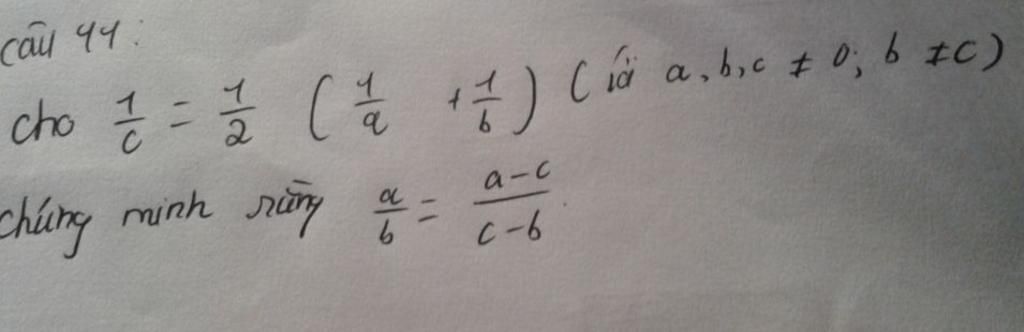 câu 44:
cho 1/c = 1/2 (1/a + 1/b) ( a, b, c ≠ 0; b ≠ c)
chứng minh rằng a/b = (a-c)/(c-b).